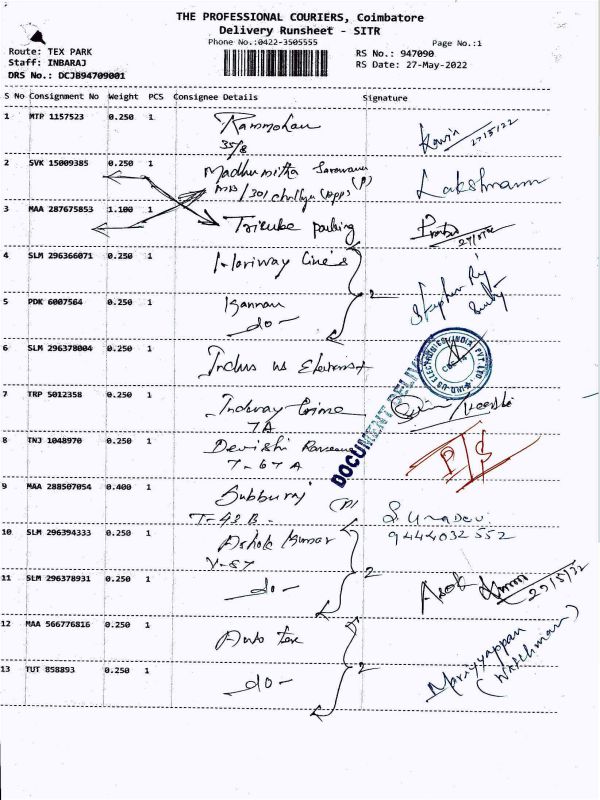 THE PROFESSIONAL COURIERS, Coimbatore
Delivery Runsheet - SITR
Phone No.:0422-3505555 Page No.:1
Route: TEX PARK RS No.: 947090
Staff: INBARAJ RS Date: 27-May-2022
DRS No.: DCJB94709001
S No Consignment No Weight PCS Consignee Details Signature
1 MTP 1157523 0.250 1 Rammohan
35/8
2 SVK 15009385 0.250 1 Madhumitha (P) Lakshmanan
3 MAA 287675853 1.100 1 Tricube parking
4 SLM 296366071 0.250 1 Hariway Cine's
2
5 PDK 6007564 0.250 1 Kannan
- do -
6 SLM 296378004 0.250 1 Indus us
IND-US ELECTRONICS (INDIA) PVT LTD
DOCUMENT DELIV
7 TRP 5012358 0.250 1
7A
8 TNJ 1048970 0.250 1 Devishi P/S
7-67A
9 MAA 288507054 0.400 1 Subburaj (P) S. Umadevi
T-42 B - 9444032552
10 SLM 296394333 0.250 1 Ashok Kumar
V-57
2
11 SLM 296378931 0.250 1 - do - Asok 27/5/22
12 MAA 566776816 0.250 1 Auto tex
2 Mariyyappan
(Watchman)
13 TUT 858893 0.250 1 - do -